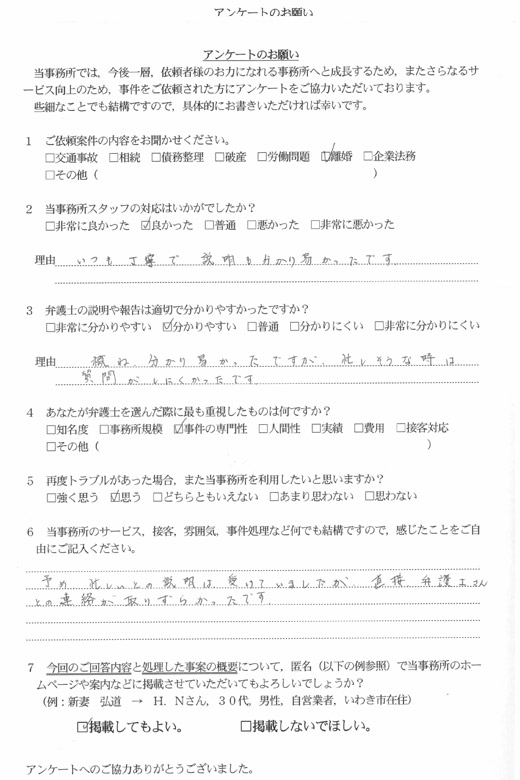 アンケートのお願い
アンケートのお願い
当事務所では，今後一層，依頼者様のお力になれる事務所へと成長するため，またさらなるサ
ービス向上のため，事件をご依頼された方にアンケートをご協力いただいております。
些細なことでも結構ですので，具体的にお書きいただければ幸いです。
1 ご依頼案件の内容をお聞かせください。
□交通事故 □相続 □債務整理 □破産 □労働問題 ☑離婚 □企業法務
□その他（ ）
2 当事務所スタッフの対応はいかがでしたか？
□非常に良かった ☑良かった □普通 □悪かった □非常に悪かった
理由 いつも丁寧で 説明も分かり易かったです。
3 弁護士の説明や報告は適切で分かりやすかったですか？
□非常に分かりやすい ☑分かりやすい □普通 □分かりにくい □非常に分かりにくい
理由 概ね、分かり易かったですが、忙しそうな時は
質問がしにくかったです。
4 あなたが弁護士を選んだ際に最も重視したものは何ですか？
□知名度 □事務所規模 ☑事件の専門性 □人間性 □実績 □費用 □接客対応
□その他（ ）
5 再度トラブルがあった場合，また当事務所を利用したいと思いますか？
□強く思う ☑思う □どちらともいえない □あまり思わない □思わない
6 当事務所のサービス，接客，雰囲気，事件処理など何でも結構ですので，感じたことをご自
由にご記入ください。
予め 忙しいとの説明は 受けていましたが、直接、弁護士さん
との連絡が取りずらかったです。
7 今回のご回答内容と処理した事案の概要について，匿名（以下の例参照）で当事務所のホー
ムページや案内などに掲載させていただいてもよろしいでしょうか？
（例：新妻 弘道 → H．Nさん，30代，男性，自営業者，いわき市在住）
☑掲載してもよい。 □掲載しないでほしい。
アンケートへのご協力ありがとうございました。